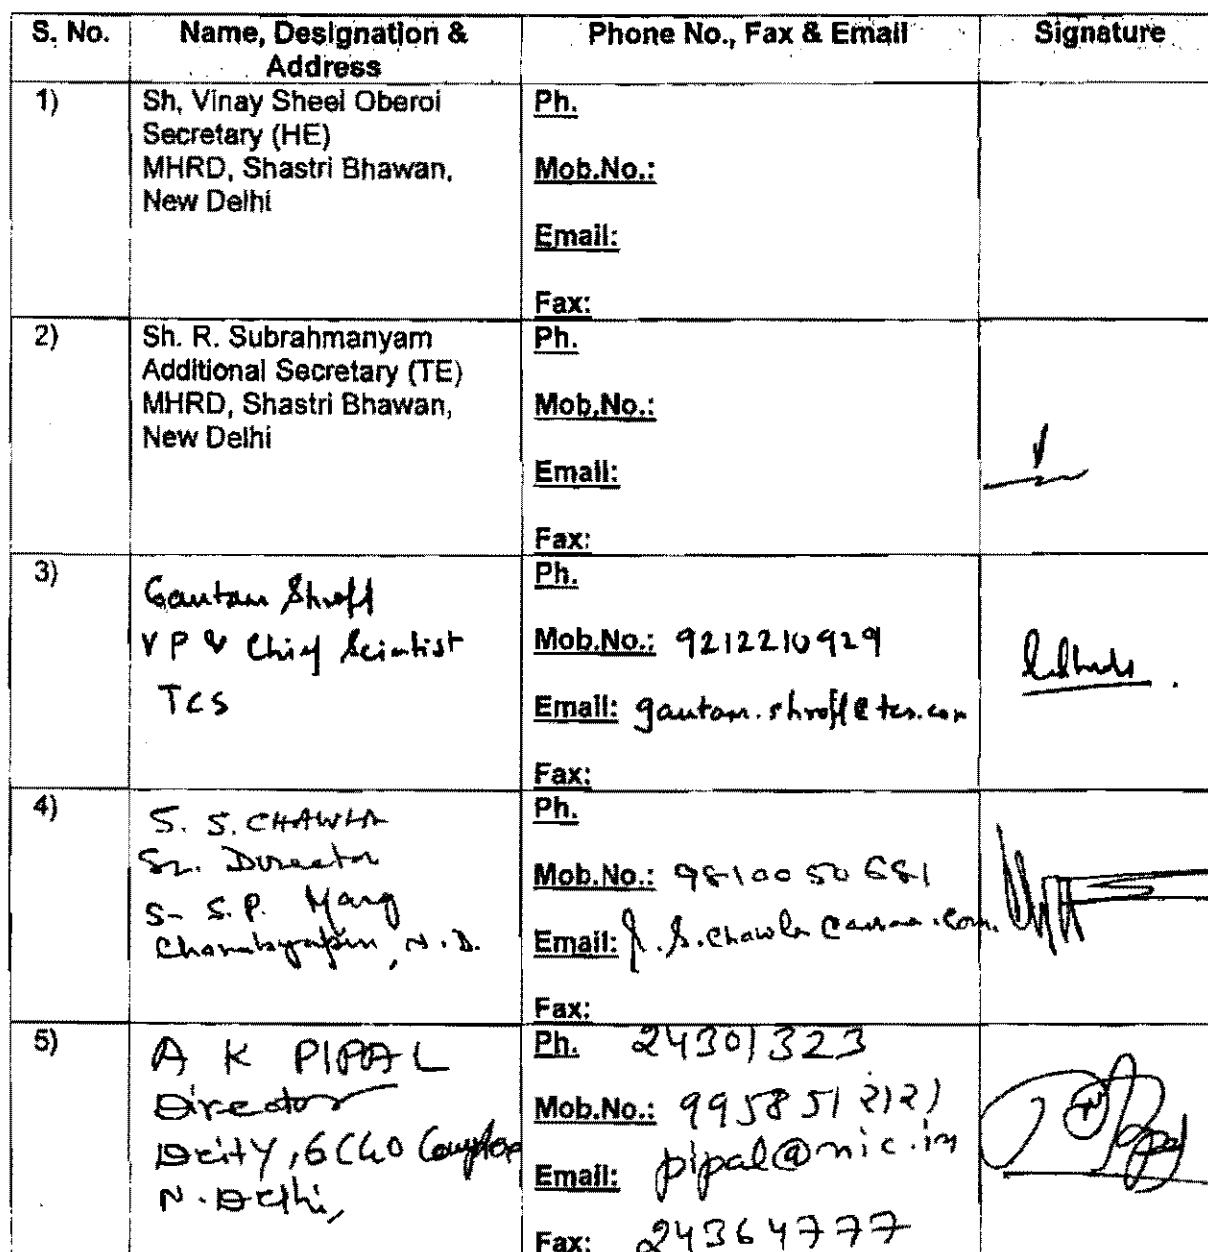 S. No. Name, Designation & Address Phone No., Fax & Email Signature
1) Sh. Vinay Sheel Oberoi
Secretary (HE)
MHRD, Shastri Bhawan,
New Delhi
Ph.
Mob.No.:
Email:
Fax:
2) Sh. R. Subrahmanyam
Additional Secretary (TE)
MHRD, Shastri Bhawan,
New Delhi
Ph.
Mob.No.:
Email:
Fax:
3) Gautam Shroff
VP & Chief Scientist
TCS
Ph.
Mob.No.: 9212210929
Email: gautam.shroff@tcs.com
Fax:
4) S. S. CHAWLA
Sr. Director
S. P. Marg
Chanakyapuri, N.D.
Ph.
Mob.No.: 9810050681
Email:
Fax:
5) A K PIPAL
Director
Deity, 6 CGO Complex
N. Delhi,
Ph. 24301323
Mob.No.: 9958512121
Email: pipal@nic.in
Fax: 24364777